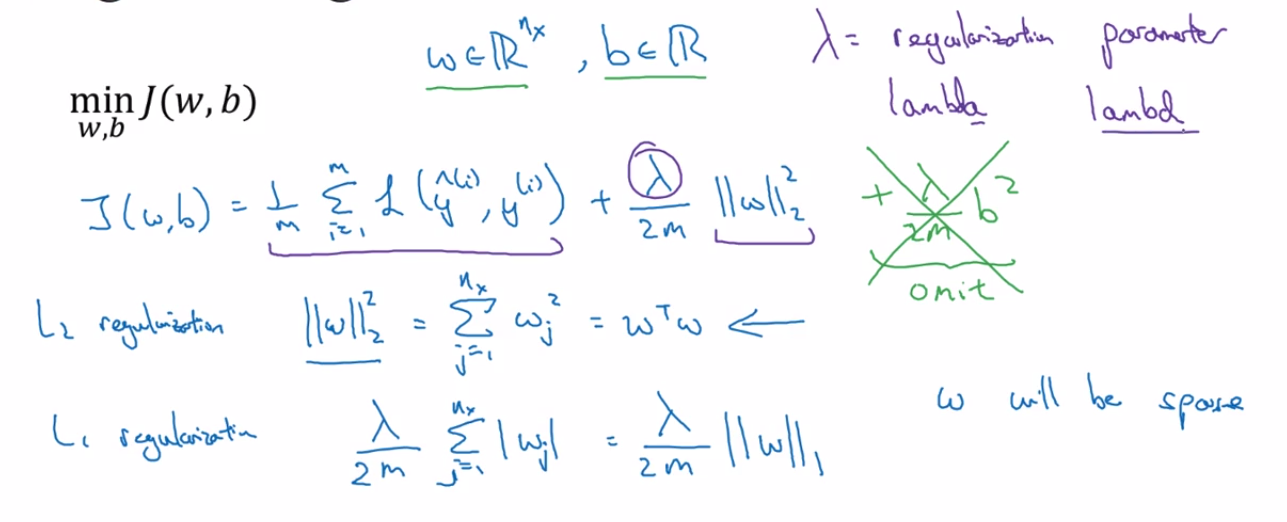 w ∈ ℝ^{n_x}, b ∈ ℝ
λ = regularization parameter
lambda lambd
min J(w, b)
w,b
J(w,b) = 1/m Σ_{i=1}^{m} L(ŷ^{(i)}, y^{(i)}) + λ/2m ||w||_2^2 + λ/2m b^2
omit
L_2 regularization ||w||_2^2 = Σ_{j=1}^{n_x} w_j^2 = w^T w ←
L_1 regularization λ/2m Σ_{j=1}^{n_x} |w_j| = λ/2m ||w||_1
w will be sparse